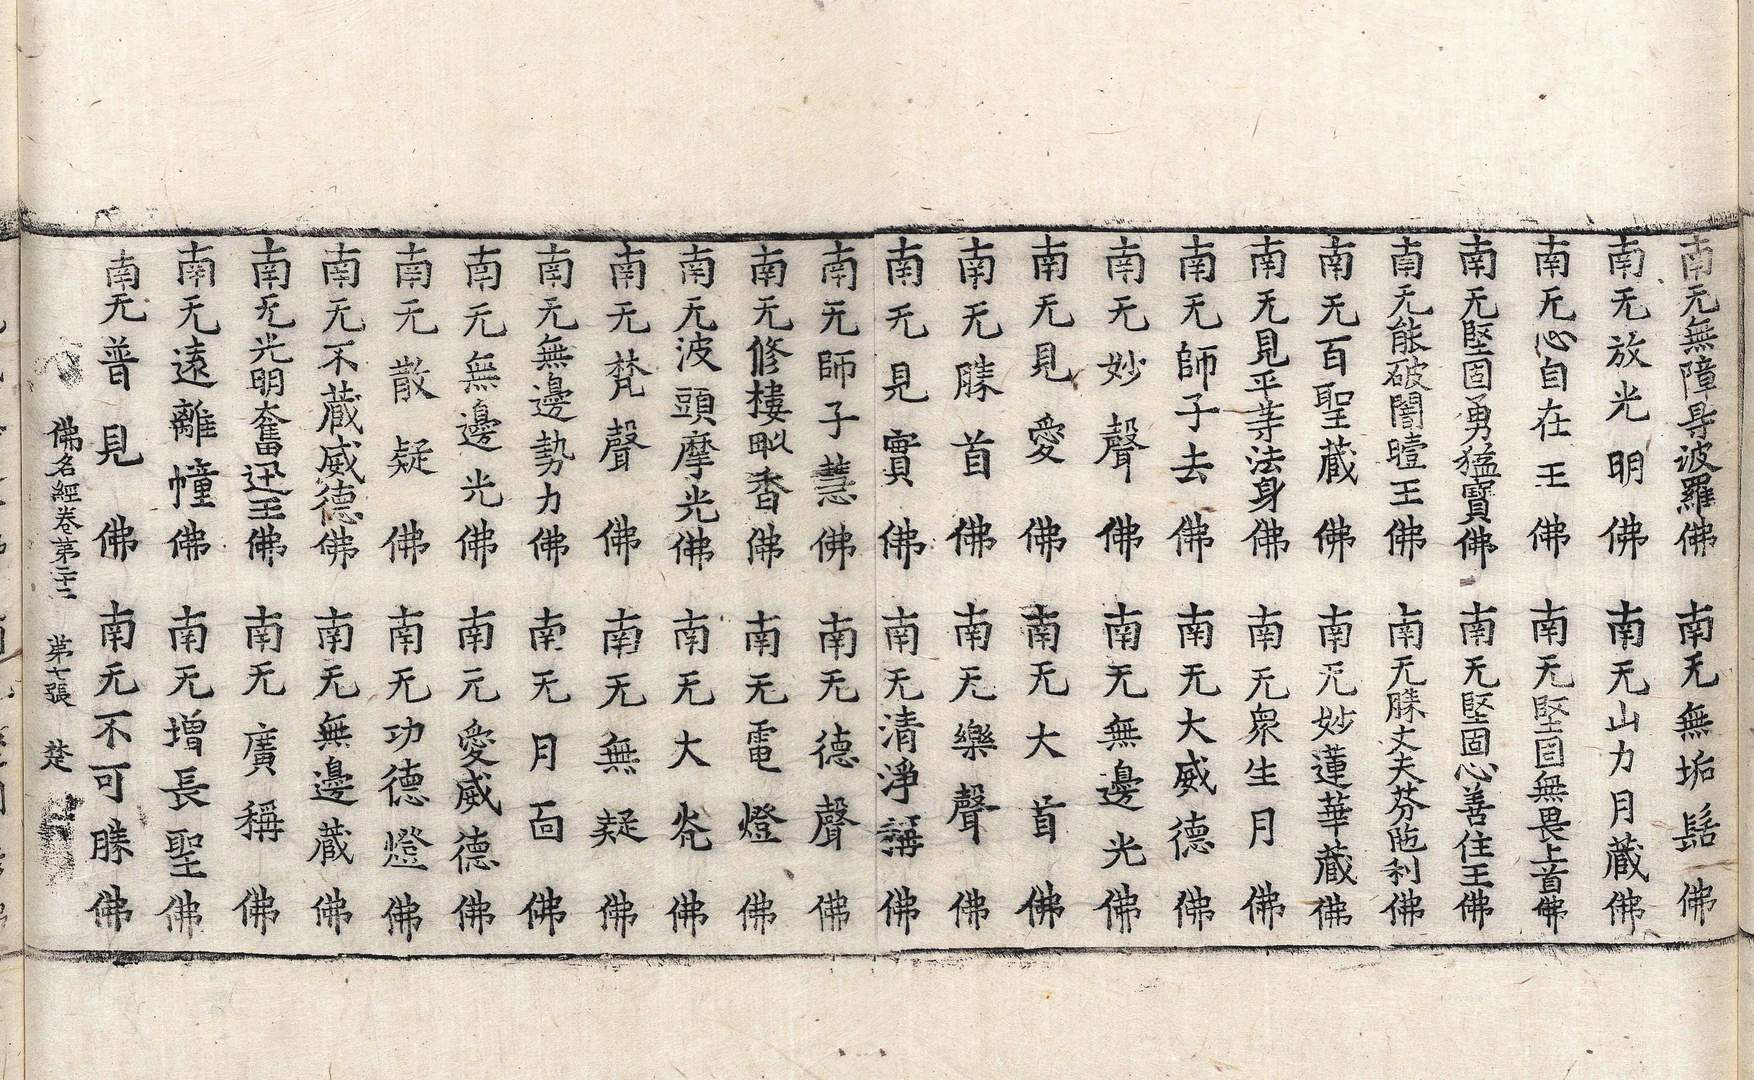 南无無障㝵波羅佛 南无無垢髻佛
南无放光明佛 南无山力月藏佛
南无心自在王佛 南无堅固無畏上首佛
南无堅固勇猛寶佛 南无堅固心善住王佛
南无能破闇曀王佛 南无勝丈夫芬陁利佛
南无百聖藏佛 南无妙蓮華藏佛
南无見平等法身佛 南无衆生月佛
南无師子去佛 南无大威德佛
南无妙聲佛 南无無邊光佛
南无見愛佛 南无大首佛
南无勝首佛 南无樂聲佛
南无見實佛 南无清淨佛
南无師子慧佛 南无德聲佛
南无修樓毗香佛 南无電燈佛
南无波頭摩光佛 南无大炎佛
南无梵聲佛 南无無疑佛
南无無邊勢力佛 南无月面佛
南无無邊光佛 南无愛威德佛
南无散疑佛 南无功德燈佛
南无不藏威德佛 南无無邊藏佛
南无光明奮迅王佛 南无廣稱佛
南无遠離幢佛 南无增長聖佛
南无普見佛 南无不可勝佛
佛名經卷第二十二 第七張 楚